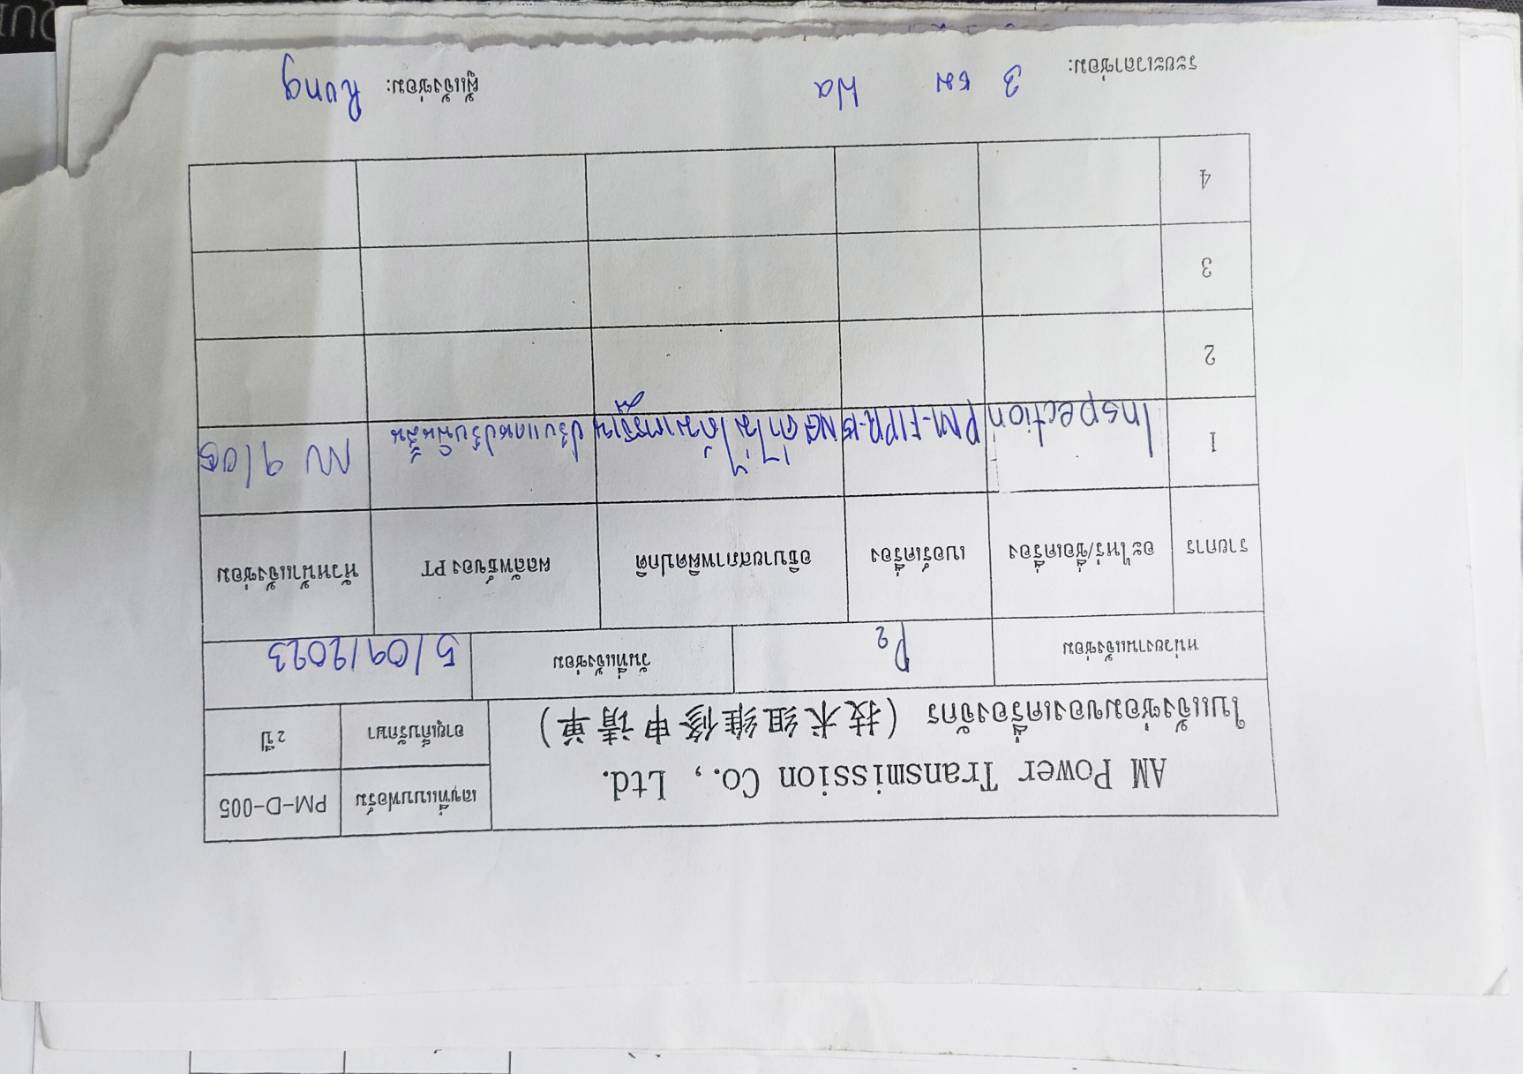 AM Power Transmission Co., Ltd.
ใบแจ้งซ่อมของเครื่องจักร (技术组维修申请单)
เลขที่แบบฟอร์ม PM-D-005
อายุเก็บรักษา 2 ปี
หน่วยงานแจ้งซ่อม P2 วันที่แจ้งซ่อม 5/09/2023
รายการ อะไหร่/ชื่อเครื่อง เบอร์เครื่อง อธิบายสภาพผิดปกติ ผลลัพธ์ของ PT หัวหน้าแจ้งซ่อม
1 Inspection PM-FIPR-15 NG ค่าไม่ได้มาตรฐาน ปรับแกนปรับพินสั้น
2
3
4
ระยะเวลาซ่อม: 3 ชม Wa ผู้แจ้งซ่อม: Rung